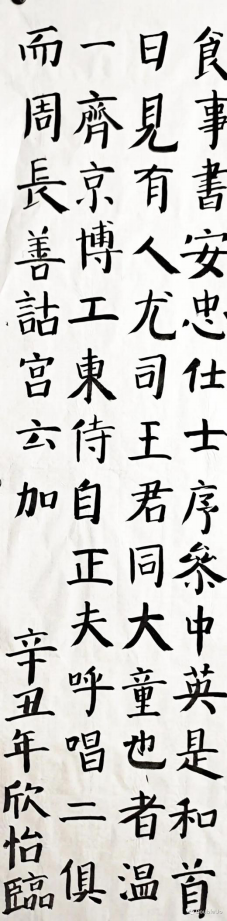 食事書安忠仕士序叅中英是和首
日見有人尤司王君同大童也者温
一齊京博工東侍自正夫呼唱二俱
而周長善詁宮云加
辛丑年欣怡臨